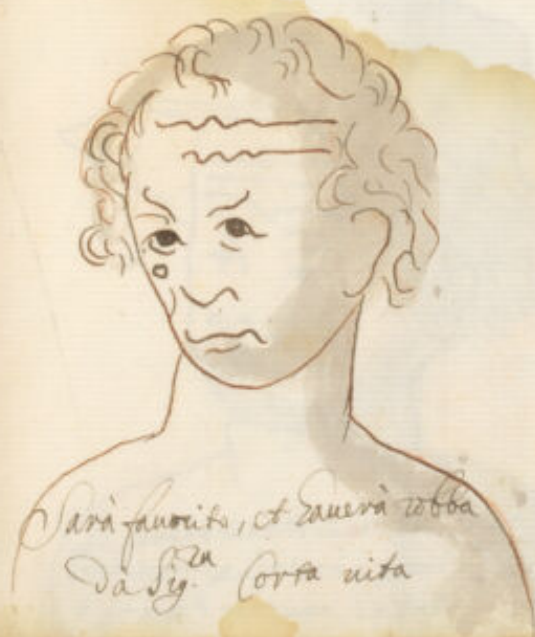 Sarà fauorito, et hauerà robba
da Sig.ra Corta uita